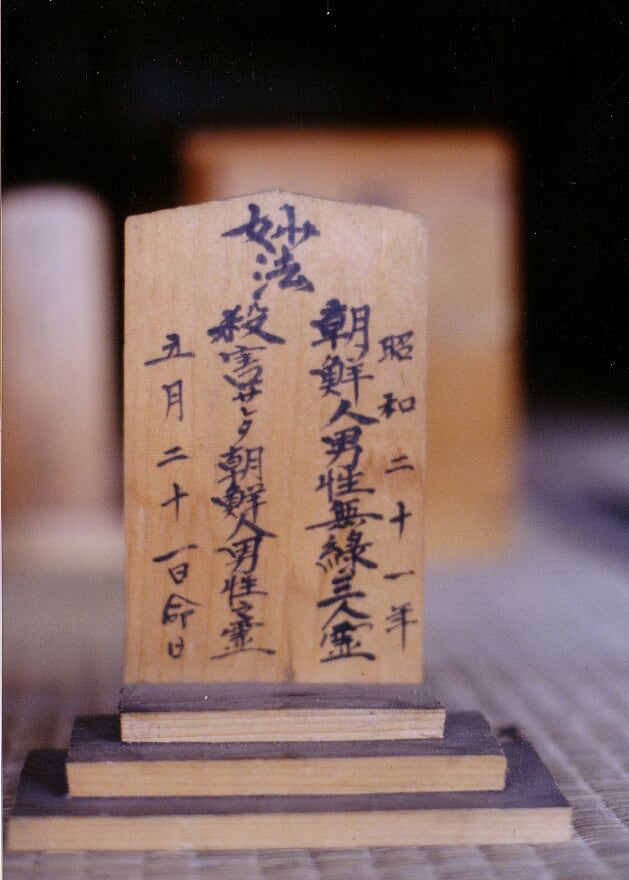 妙法
昭和二十一年
朝鮮人男性無縁三人霊
殺害せし朝鮮人男性之霊
五月二十一日命日